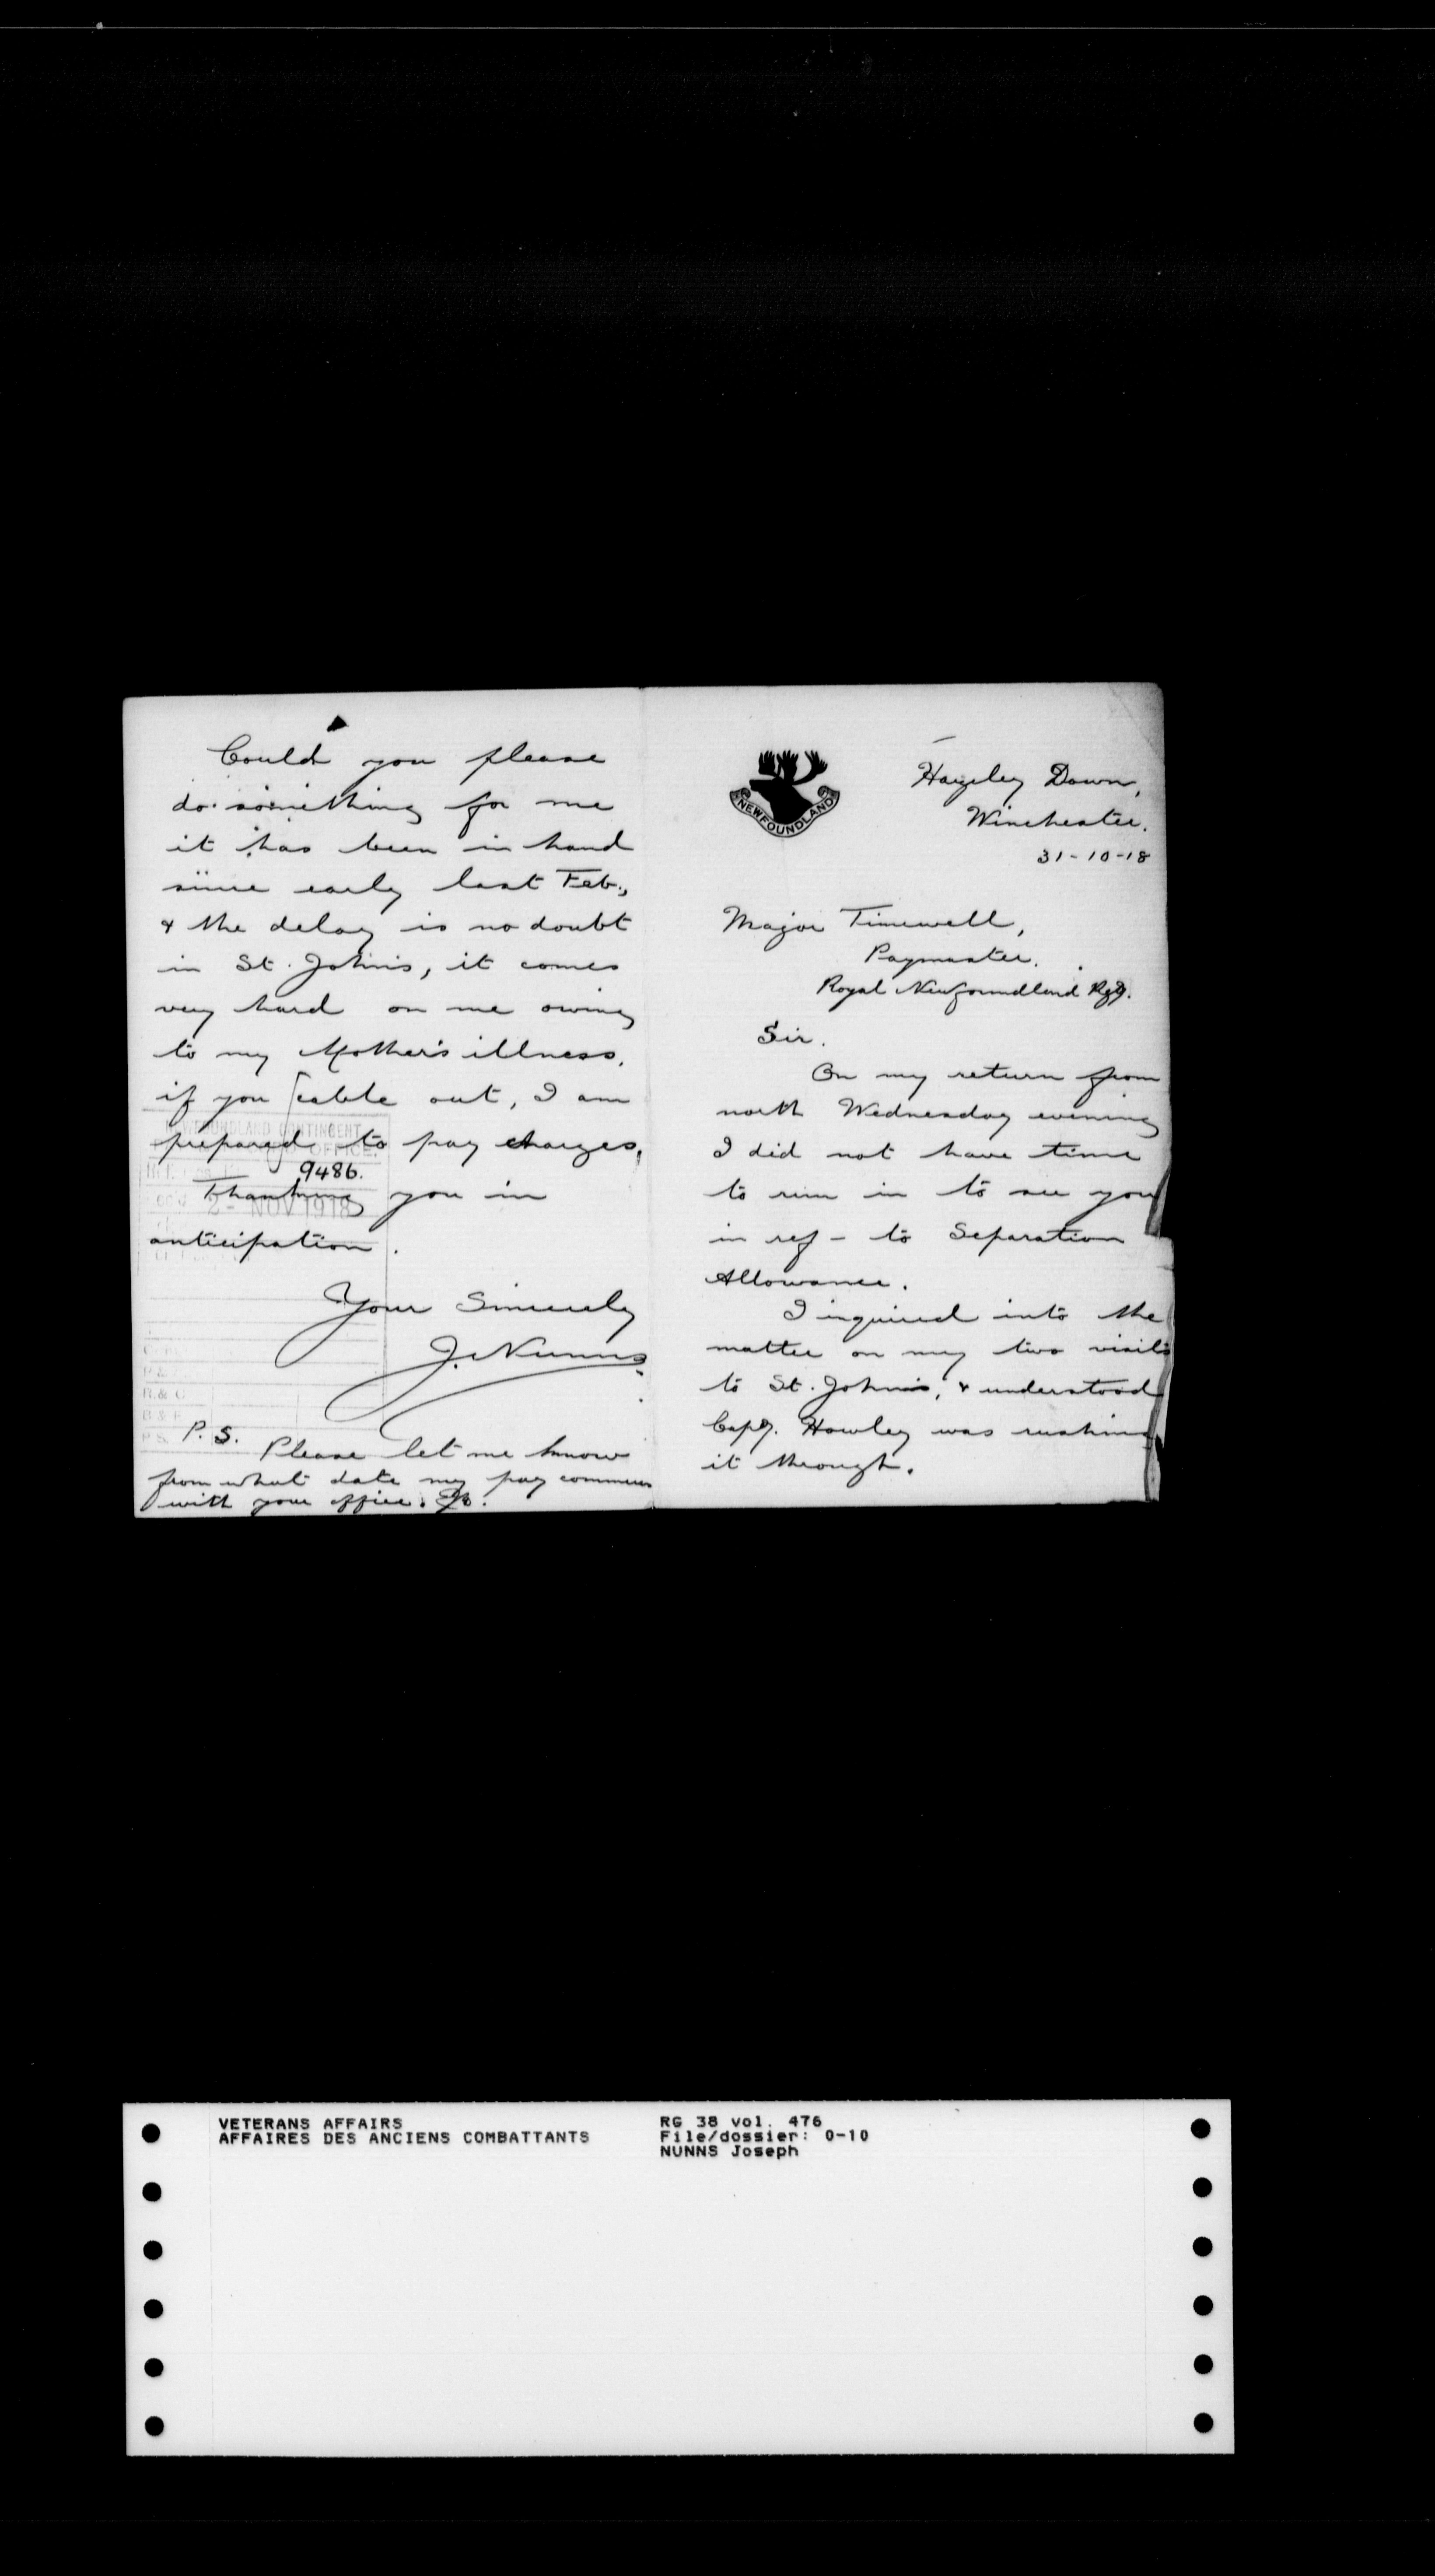 NEWFOUNDLAND
Hazeley Down,
Winchester.
31-10-18
Major Timewell,
Paymaster.
Royal Newfoundland Rgt.
Sir.
On my return from
north Wednesday evening
I did not have time
to run in to see you
in ref - to Separation
Allowance.
I inquired into the
matter on my two visits
to St. John's, & understood
Capt. Howley was rushing
it through.
Could you please
do something for me
it has been in hand
since early last Feb.,
& the delay is no doubt
in St. John's, it comes
very hard on me owing
to my Mother's illness.
if you cable out, I am
prepared to pay charges.
NEWFOUNDLAND CONTINGENT
OFFICE.
9486.
2 - NOV 1918
Thanking you in
anticipation.
Your Sincerely
J. Nunns
R. & C
B & F
P. S. Please let me know
from what date my pay commences
with your office.
VETERANS AFFAIRS
AFFAIRES DES ANCIENS COMBATTANTS
RG 38 vol. 476
File/dossier: 0-10
NUNNS Joseph